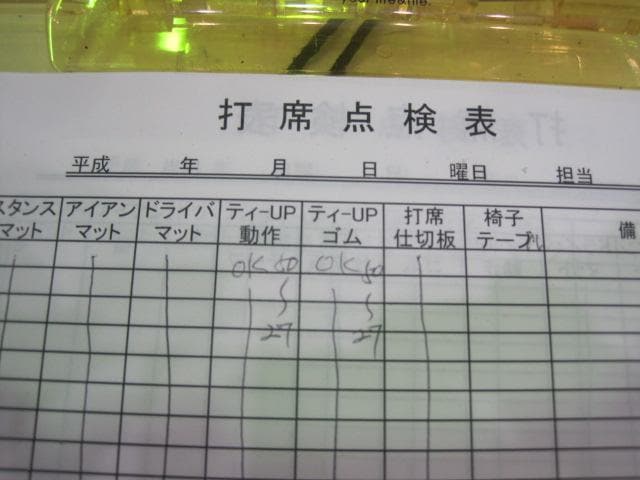 your life&life.
打席点検表
平成 年 月 日 曜日 担当
スタンス マット アイアン マット ドライバ マット ティーUP 動作 ティーUP ゴム 打席 仕切板 椅子 テーブル 備
OK 50 OK 50
27 27